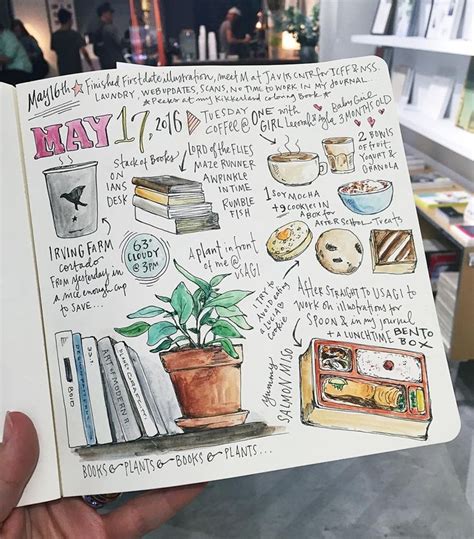 May 16th ☆ Finished First date illustration, meet M at Javits Cntr for TCFF & NSS.
Laundry, web updates, scans, no time to work in my journal...
*Peeker at my Kikkerland coloring Book*
MAY 17, 2016
TUESDAY
COFFEE @ ONE with
GIRL
Baby Girl
3 MONTHS OLD
Stack of Books
ON
IAN'S
DESK
LORD of the FLIES
MAZE RUNNER
A WRINKLE
IN TIME
RUMBLE
FISH
1 SOY MOCHA
+ 9 COOKIES IN
A BOX for
AFTER SCHOOL Treats
2 BOWLS
of fruit,
YOGURT &
GRANOLA
IRVING FARM
cortado
FROM yesterday in
a nice enough cup
TO SAVE...
63°
CLOUDY
@ 3PM
A plant in front
of me @
USAGI
I TRY to
AVOID eating
a
COOKIE
AFTER STRAIGHT TO USAGI to
WORK on illustrations for
SPOON & in my journal
+ A LUNCHTIME BENTO
BOX
Yummy
SALMON MISO
BOLD
ART & MODERN
BOOKS & PLANTS & BOOKS & PLANTS...